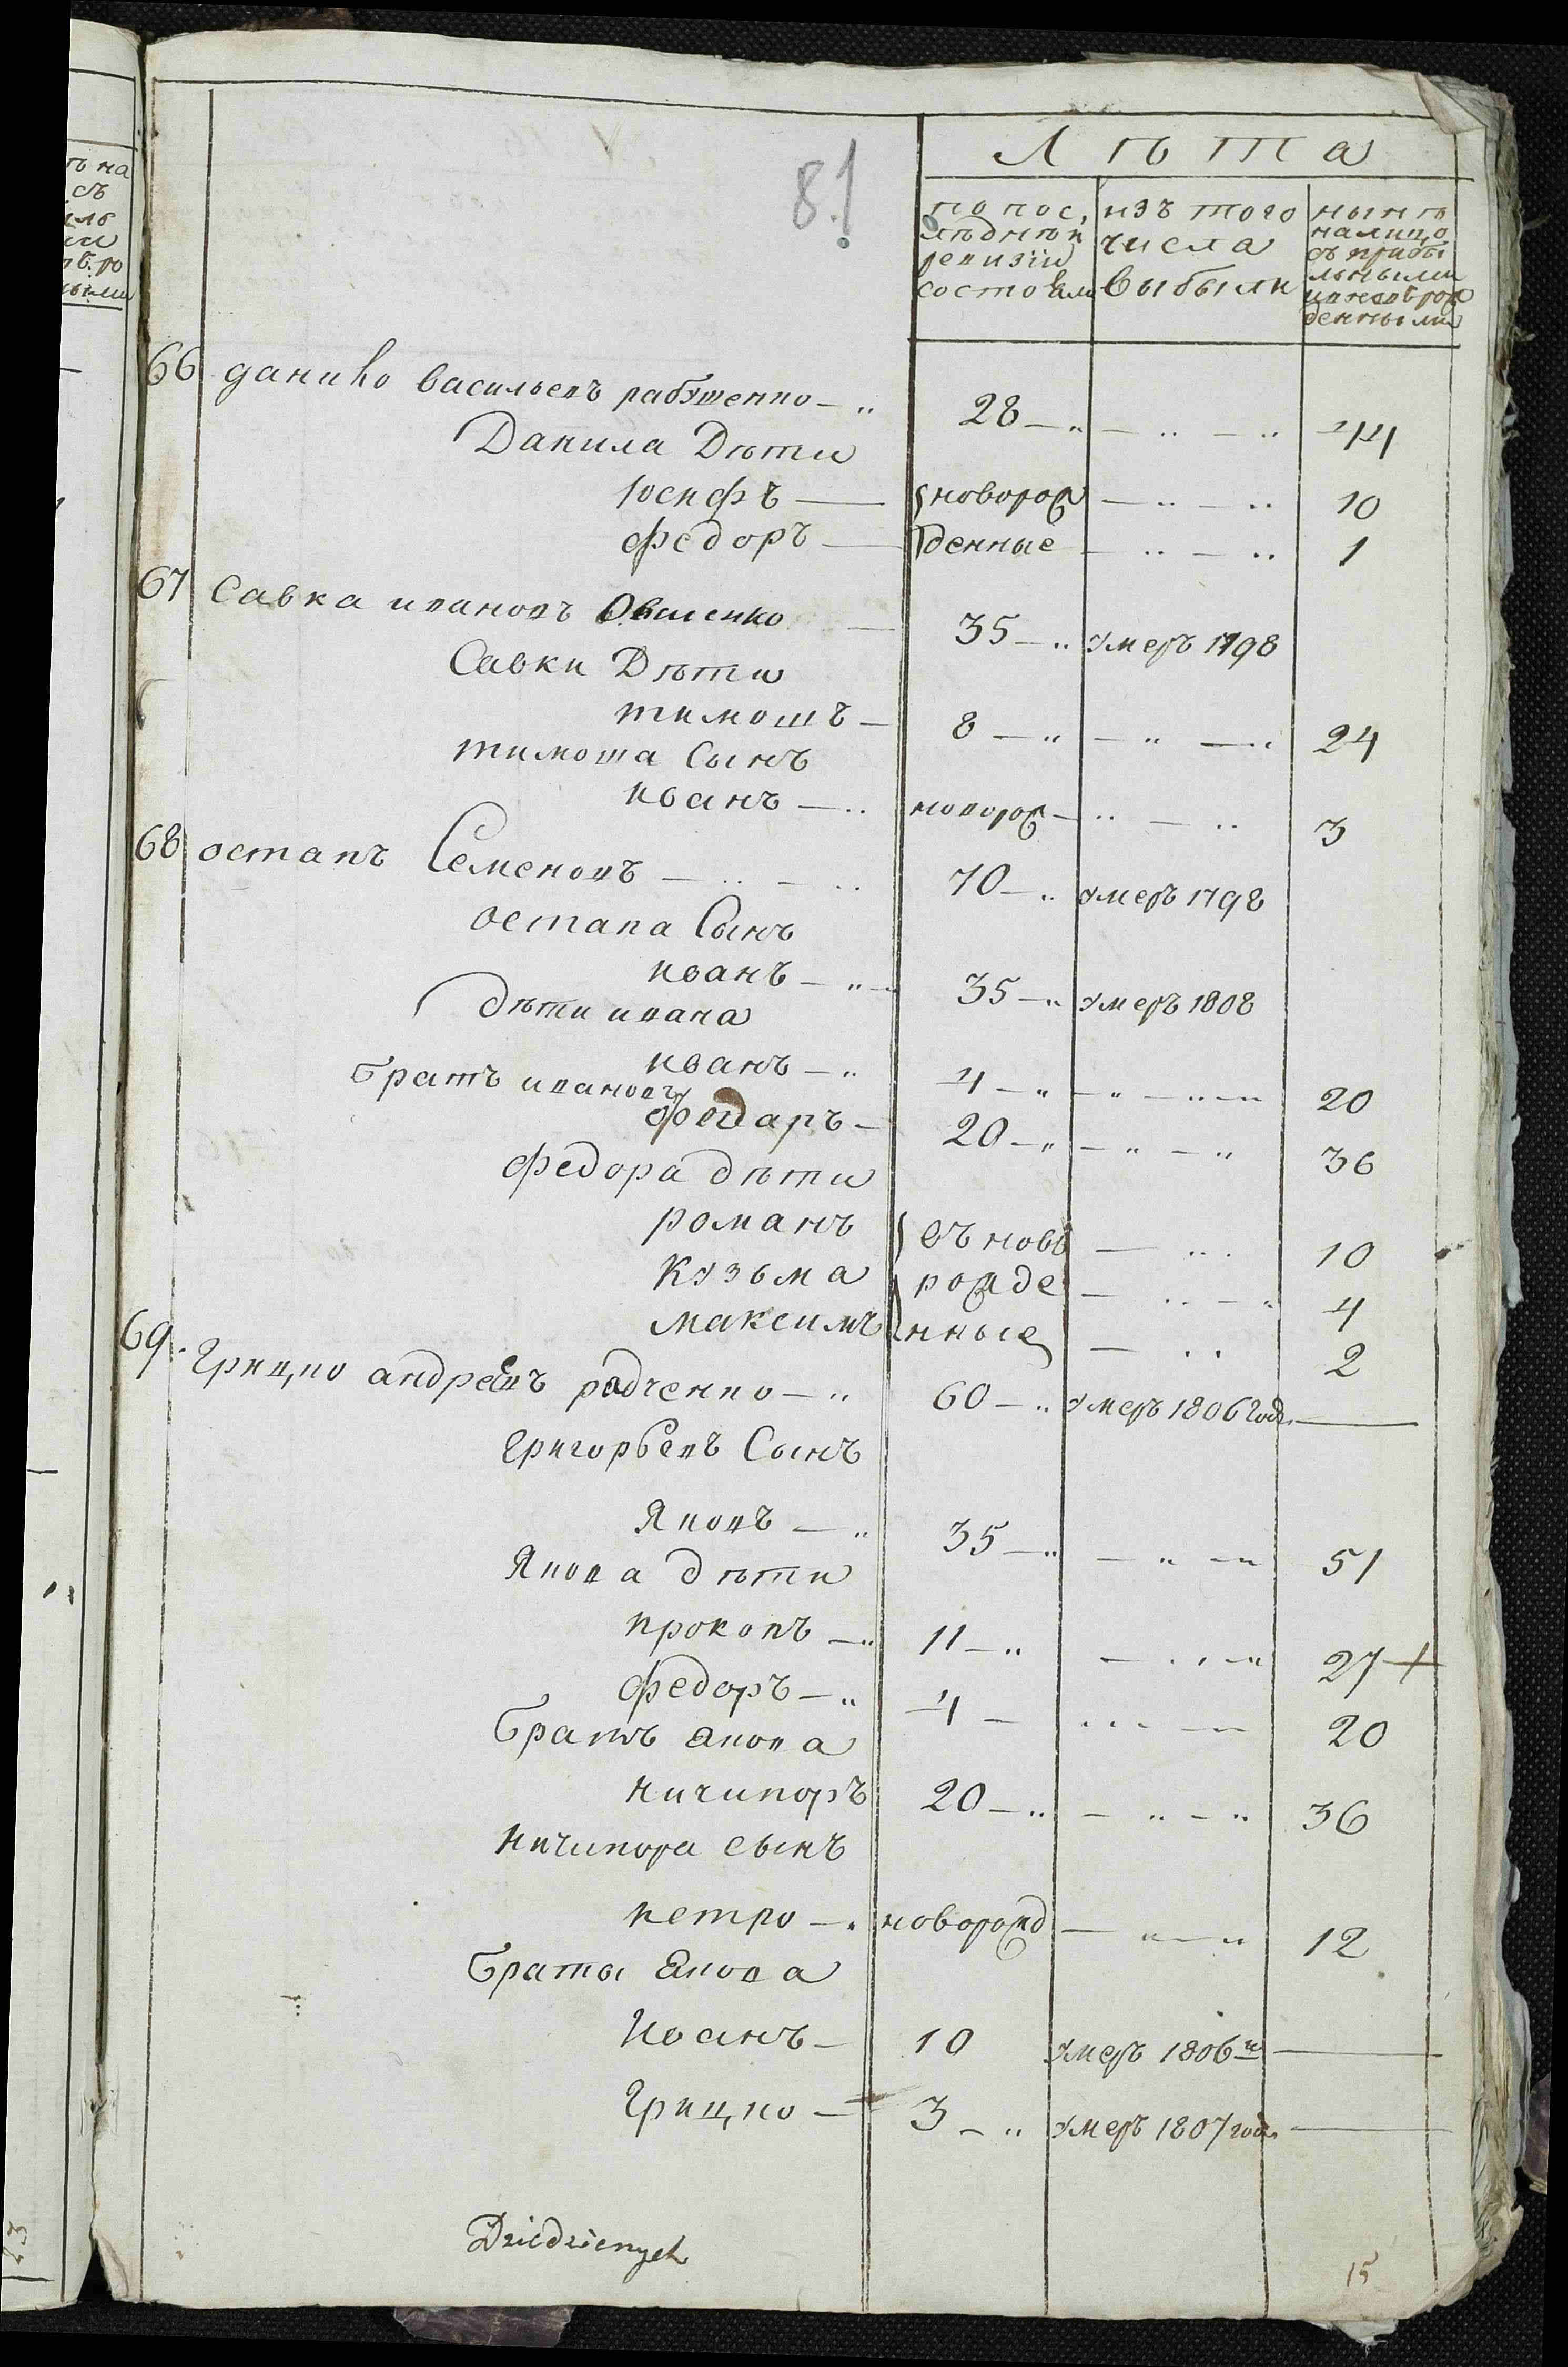 81
Лѣта
по пос,
лѣднѣй
ревизіи
состояли
изъ того
числа
выбыли
нынѣ
налицо
съ прибы
льными
и новорож
денными
66 данико васильевъ рабушенко — „ 28 — „ — „ — „ 44
Данила Дѣти
Іосифъ — новорож — „ — „ 10
федоръ — денные — „ — „ 1
67 Савка ивановъ — 35 — „ умеръ 1798
Савки Дѣти
тимошъ — 8 — „ — „ — „ 24
тимоша Сынъ
иванъ — „ новорож — „ — „ 3
68 остапъ Семеновъ — „ — „ 70 — „ умеръ 1798
остапа Сынъ
иванъ — „ — 35 — „ умеръ 1808
Дѣти ивана
иванъ — „ 4 — „ — „ — „ — „ 20
братъ ивановъ
федаръ — 20 — „ — „ — „ 36
федора дѣти
романъ въ новѣ — „ 10
Кузьма рожде — „ — „ 4
максимъ нные — „ 2
69. грицко андреевъ радченко — „ 60 — „ умеръ 1806 год. —
григорьевъ Сынъ
Яковъ — „ 35 — „ — „ — „ 51
Якова дѣти
прокопъ — „ 11 — „ — „ — „ 27 +
федоръ — „ 4 — „ — „ 20
братъ якова
ничипоръ 20 — „ — „ — „ 36
ничипора сынъ
петро — „ новорожд — „ — „ 12
браты якова
Иванъ — 10 умеръ 1806 г —
грицко — 3 — „ умеръ 1807 год. —
15